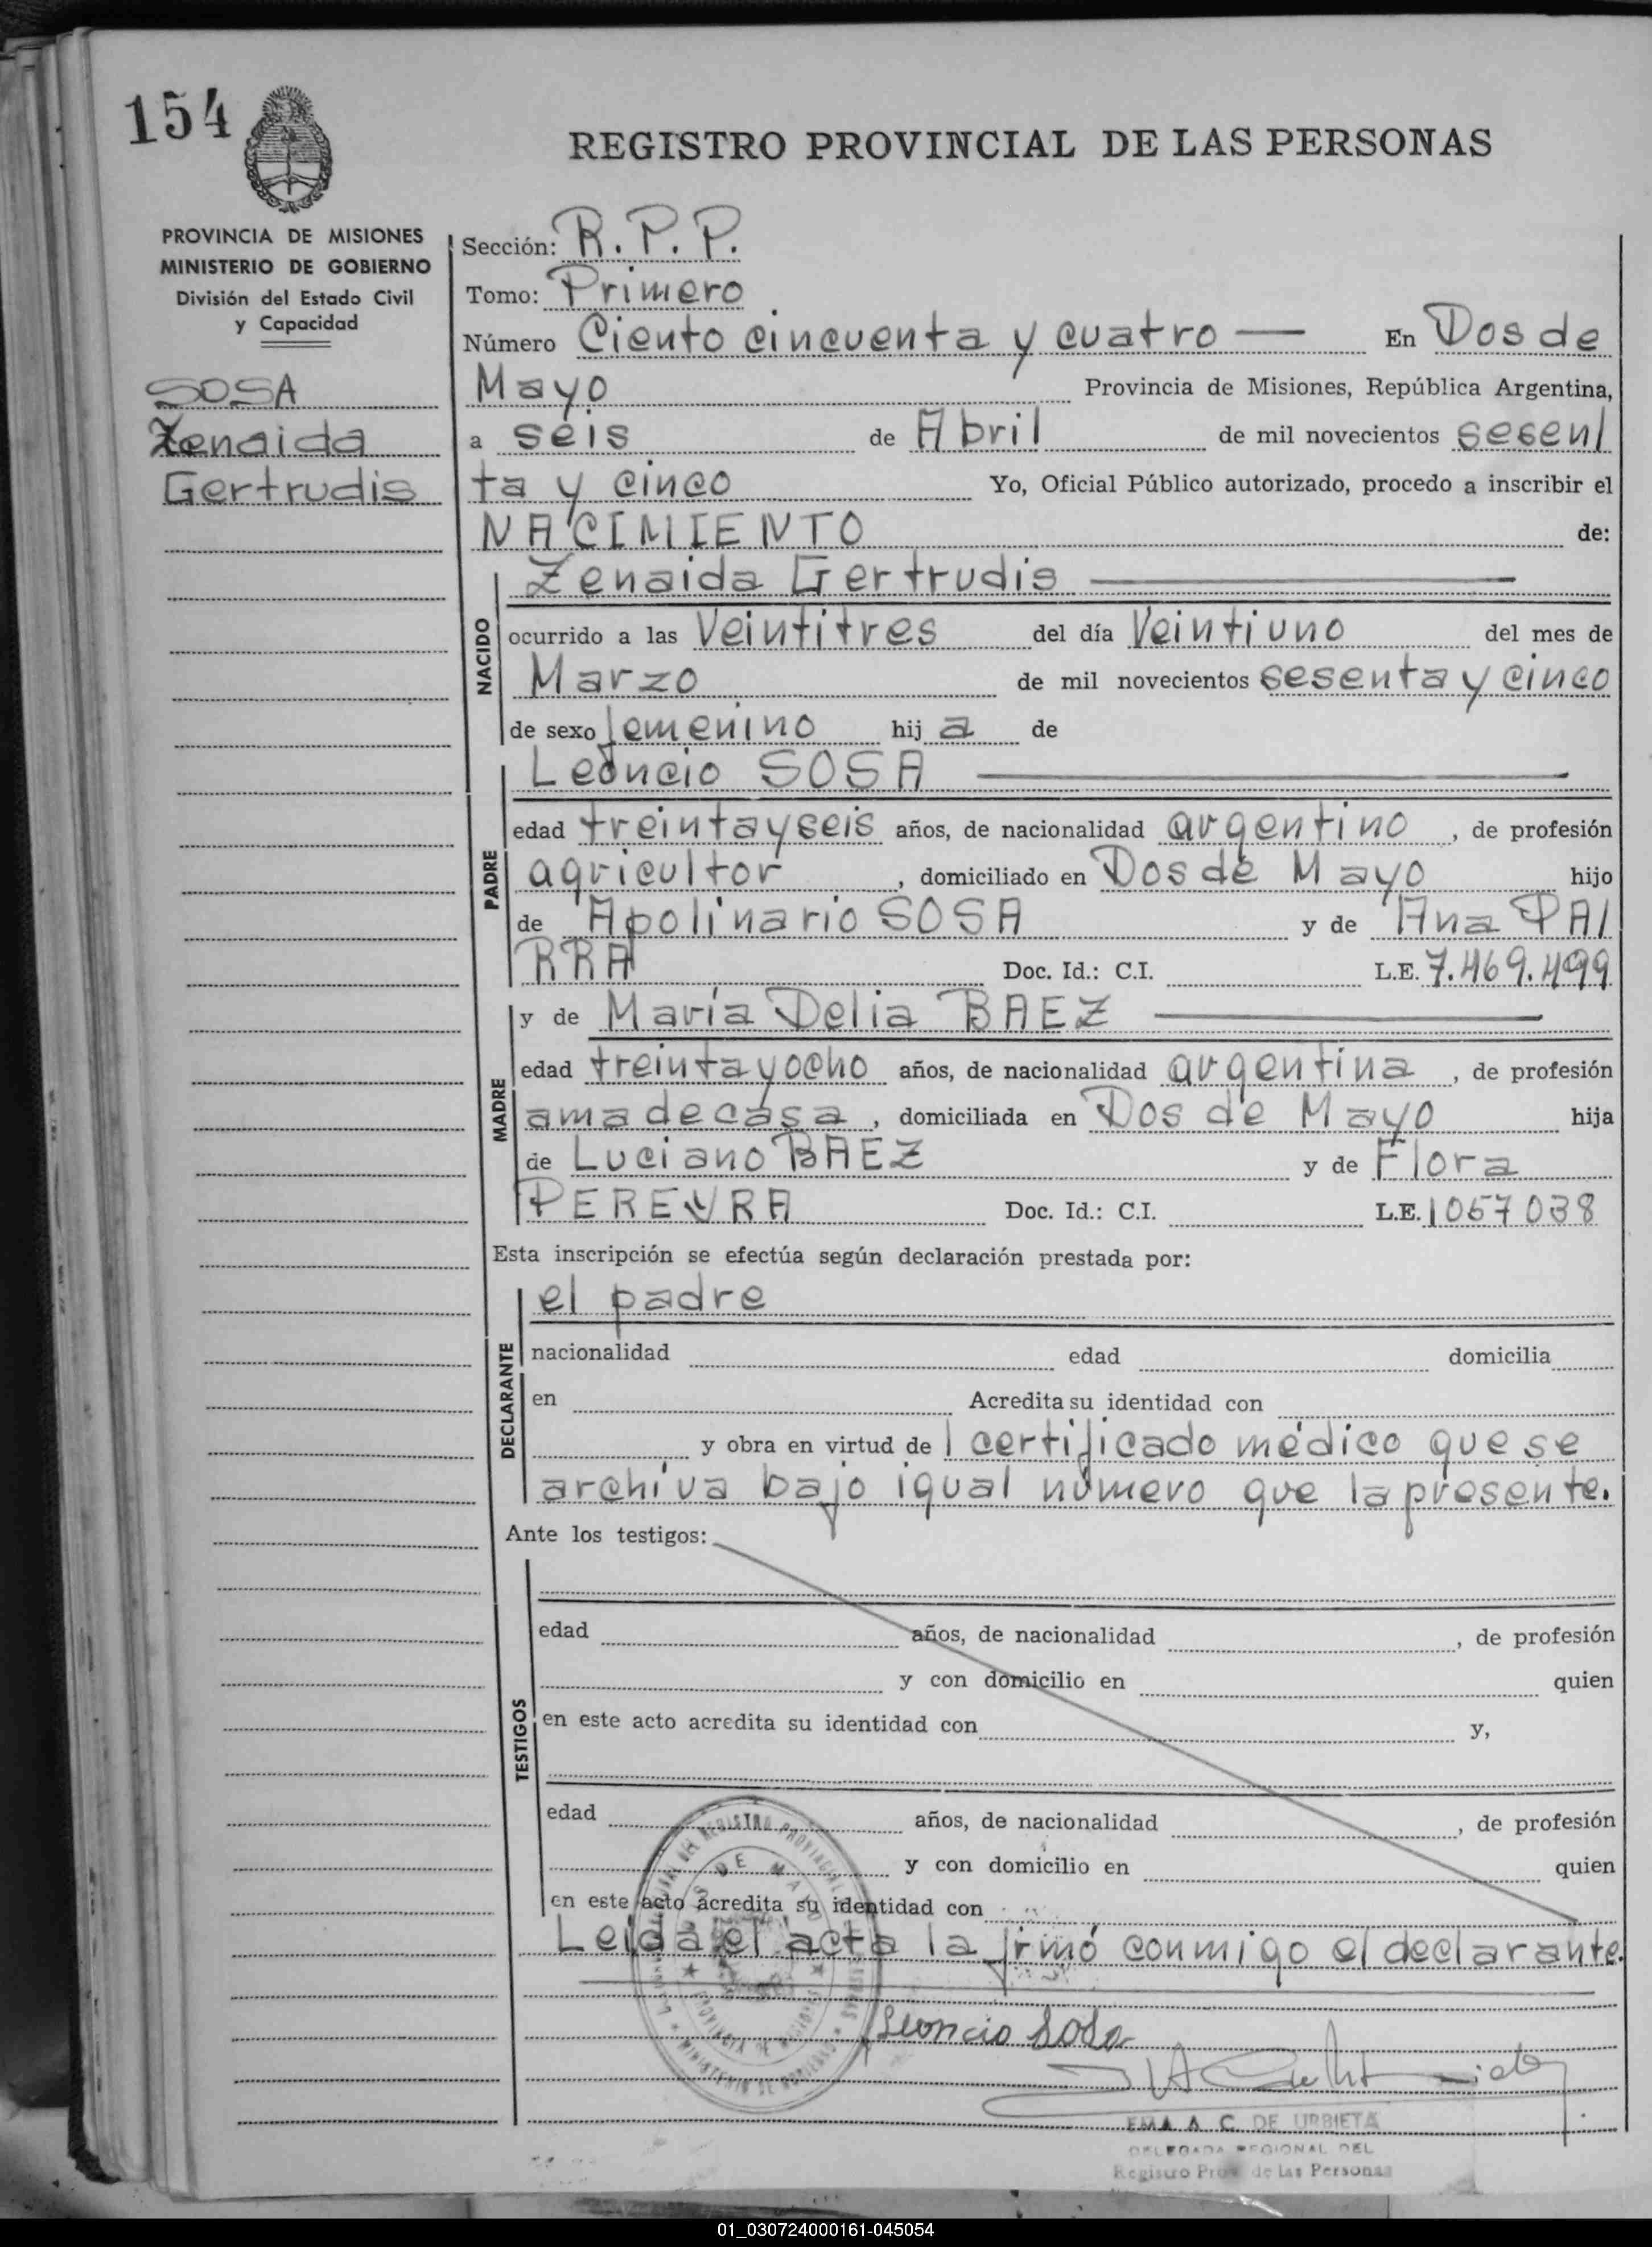 154
REGISTRO PROVINCIAL DE LAS PERSONAS
PROVINCIA DE MISIONES
MINISTERIO DE GOBIERNO
División del Estado Civil
y Capacidad
SOSA
Zenaida
Gertrudis
Sección: R.P.P.
Tomo: Primero
Número Ciento cincuenta y cuatro — En Dos de
Mayo Provincia de Misiones, República Argentina,
a seis de Abril de mil novecientos sesen/
ta y cinco Yo, Oficial Público autorizado, procedo a inscribir el
NACIMIENTO de:
NACIDO
Zenaida Gertrudis
ocurrido a las Veintitres del día Veintiuno del mes de
Marzo de mil novecientos sesenta y cinco
de sexo femenino hij a de
PADRE
Leoncio SOSA
edad treinta y seis años, de nacionalidad argentino, de profesión
agricultor, domiciliado en Dos de Mayo hijo
de Apolinario SOSA y de Ana PA/
RRA Doc. Id.: C.I. L.E. 7.469.499
MADRE
y de María Delia BAEZ
edad treinta y ocho años, de nacionalidad argentina, de profesión
ama de casa, domiciliada en Dos de Mayo hija
de Luciano BAEZ y de Flora
PEREYRA Doc. Id.: C.I. L.E. 1057038
Esta inscripción se efectúa según declaración prestada por:
DECLARANTE
el padre
nacionalidad edad domicilia
en Acredita su identidad con
y obra en virtud de l certificado médico que se
archiva bajo igual número que la presente.
Ante los testigos:
TESTIGOS
edad años, de nacionalidad , de profesión
y con domicilio en quien
en este acto acredita su identidad con y,
edad años, de nacionalidad , de profesión
y con domicilio en quien
en este acto acredita su identidad con
Leida el acta la firmó conmigo el declarante.
Leoncio Sosa
EMA A. C. DE URBIETA
DELEGADA REGIONAL DEL
Registro Prov. de las Personas
01_030724000161-045054